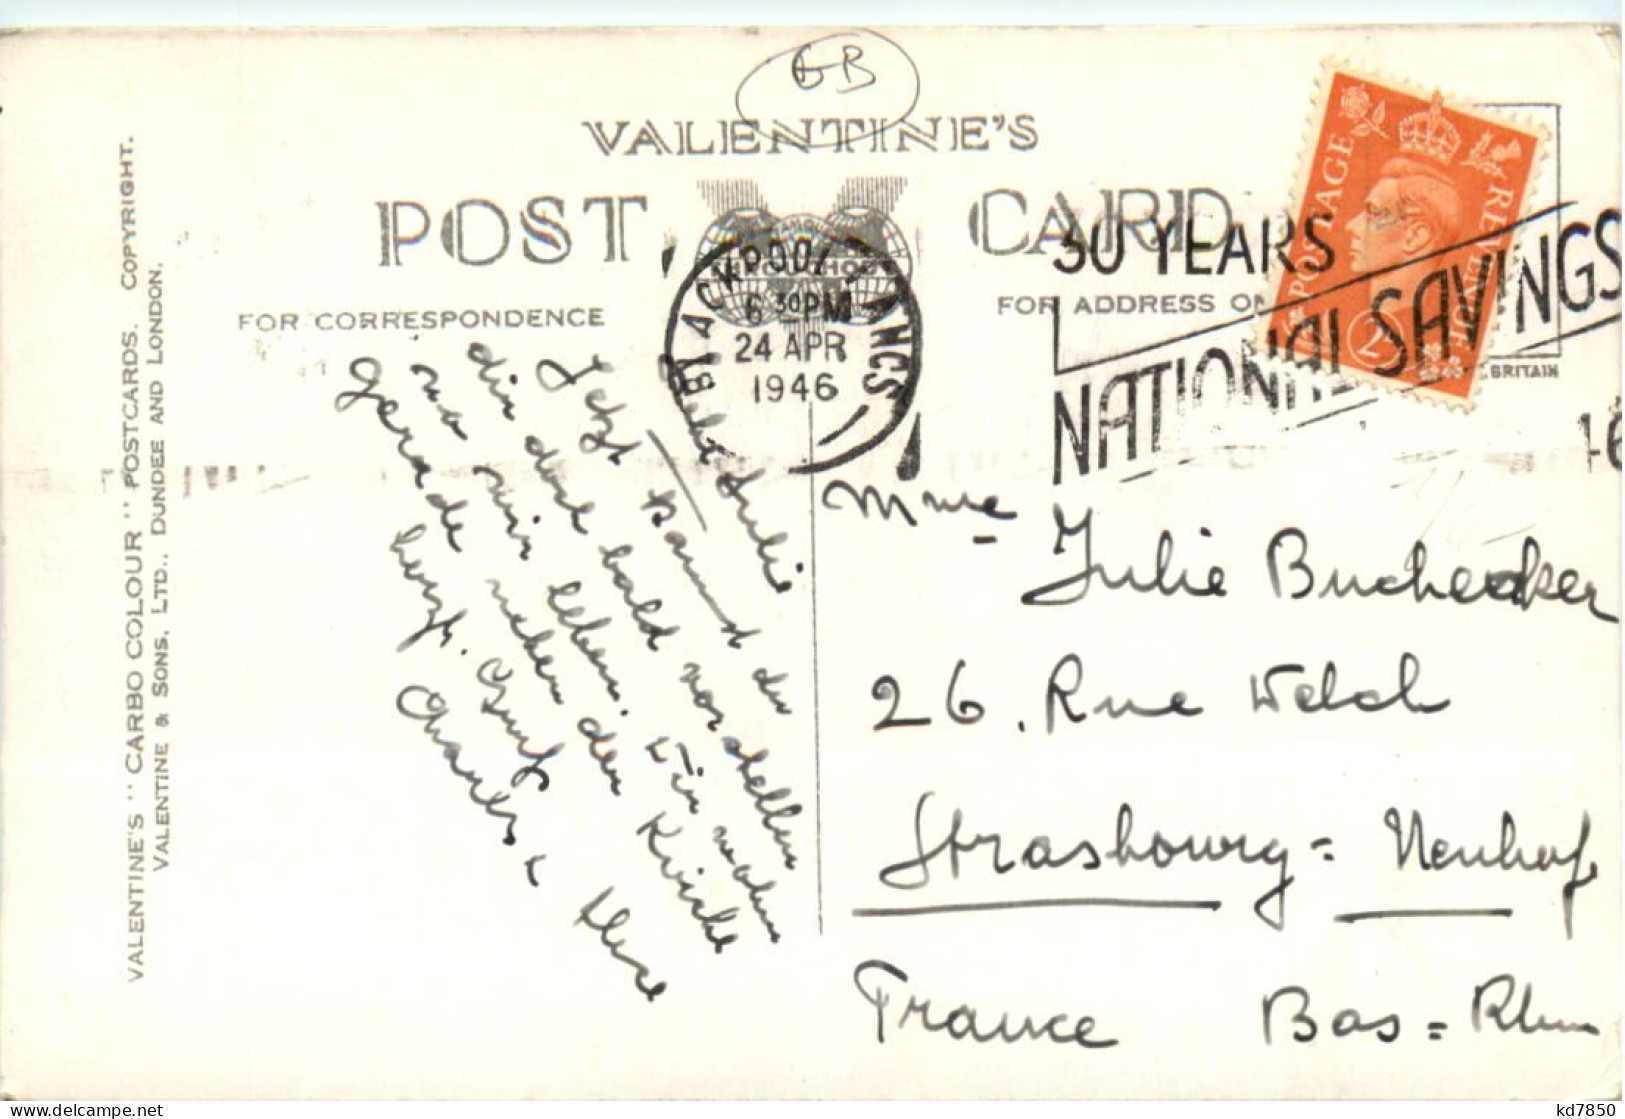 GB
VALENTINE'S
POST CARD
FOR CORRESPONDENCE
FOR ADDRESS ON
BRITAIN
BLACKPOOL LANCS
6 30 PM
24 APR
1946
30 YEARS
NATIONAL SAVINGS
46
POSTAGE REVENUE
2
VALENTINE'S "CARBO COLOUR" POSTCARDS. COPYRIGHT.
VALENTINE & SONS, LTD., DUNDEE AND LONDON.
Julie
Jetzt kannst du
dir dort bald vorstellen
wo wir leben. Wir wohnen
gerade neben der Kirche
herzl. Gruß
Charles &
Mme
Julie Buchecker
26. Rue Welch
Strasbourg = Neuhof
France Bas = Rhin
kd7850